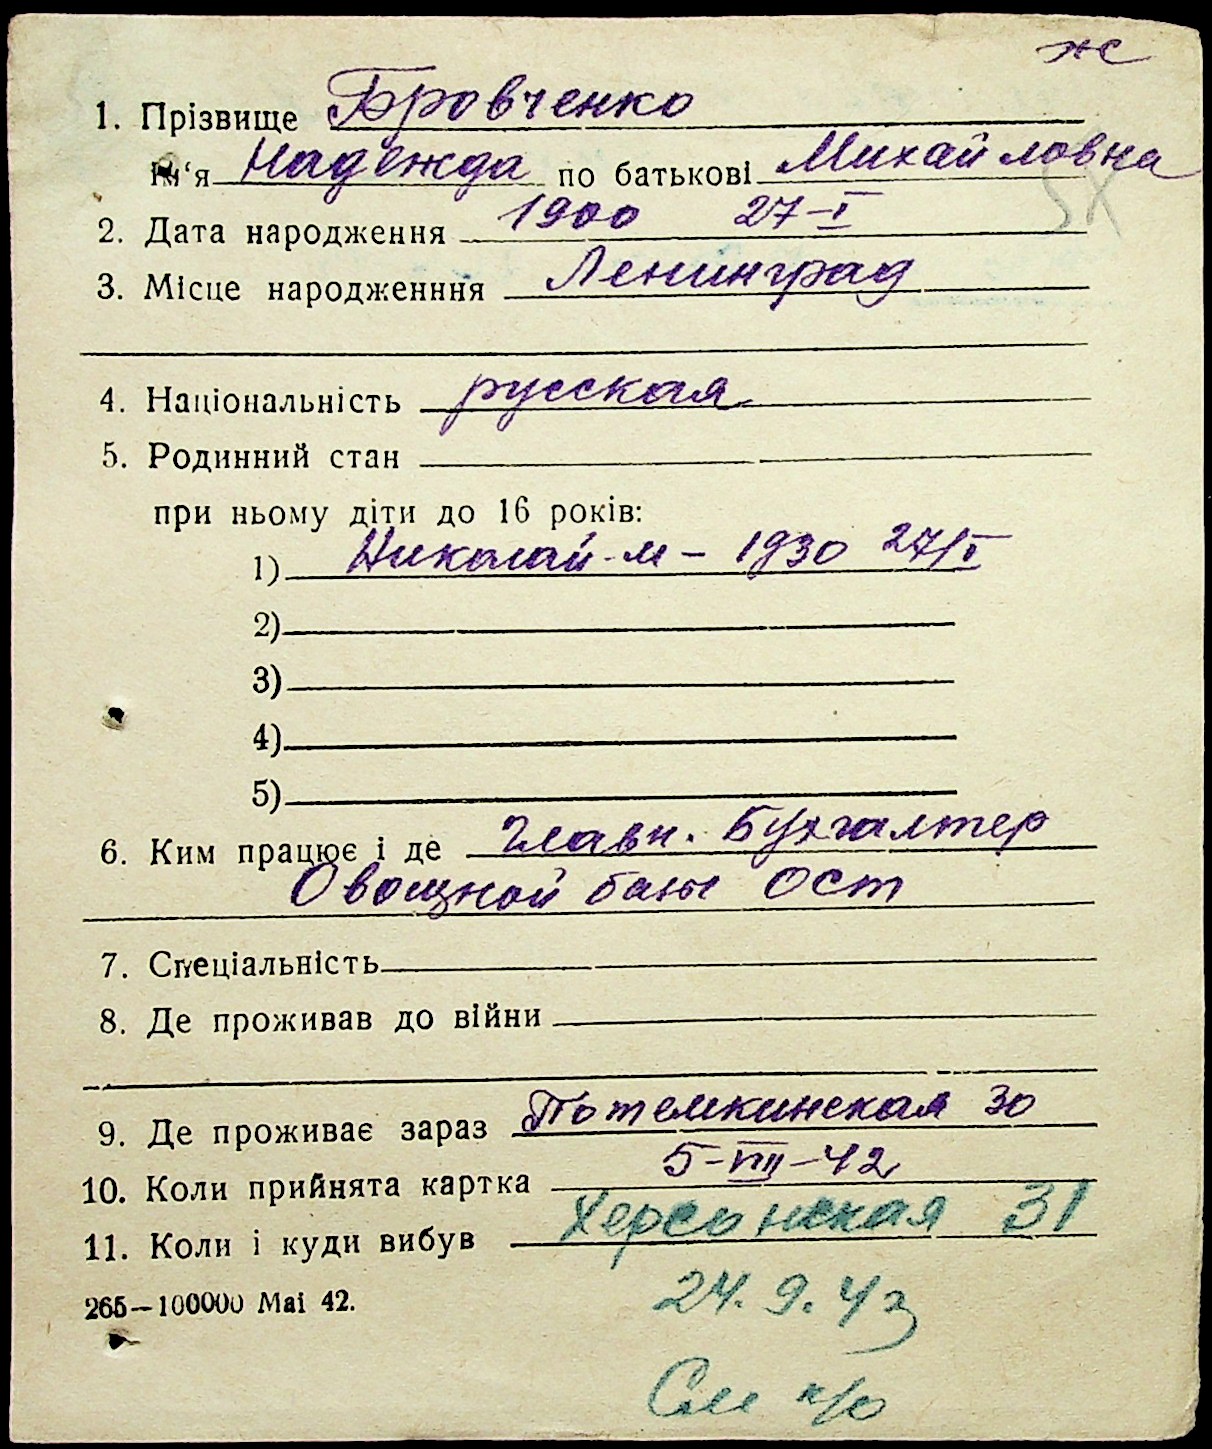 ж
1. Прізвище Бровченко
Ім'я Надежда по батькові Михайловна
2. Дата народження 1900 27-I
3. Місце народженння Ленинград
4. Національність русская
5. Родинний стан
при ньому діти до 16 років:
1) Николай-м - 1930 27/I
2)
3)
4)
5)
6. Ким працює і де Главн. Бухгалтер
Овощной базы Ост
7. Спеціальність
8. Де проживав до війни
9. Де проживає зараз Потемкинская 30
10. Коли прийнята картка 5-VIII-42
11. Коли і куди вибув Херсонская 31
265—100000 Mai 42.
24.9.43
См н/о